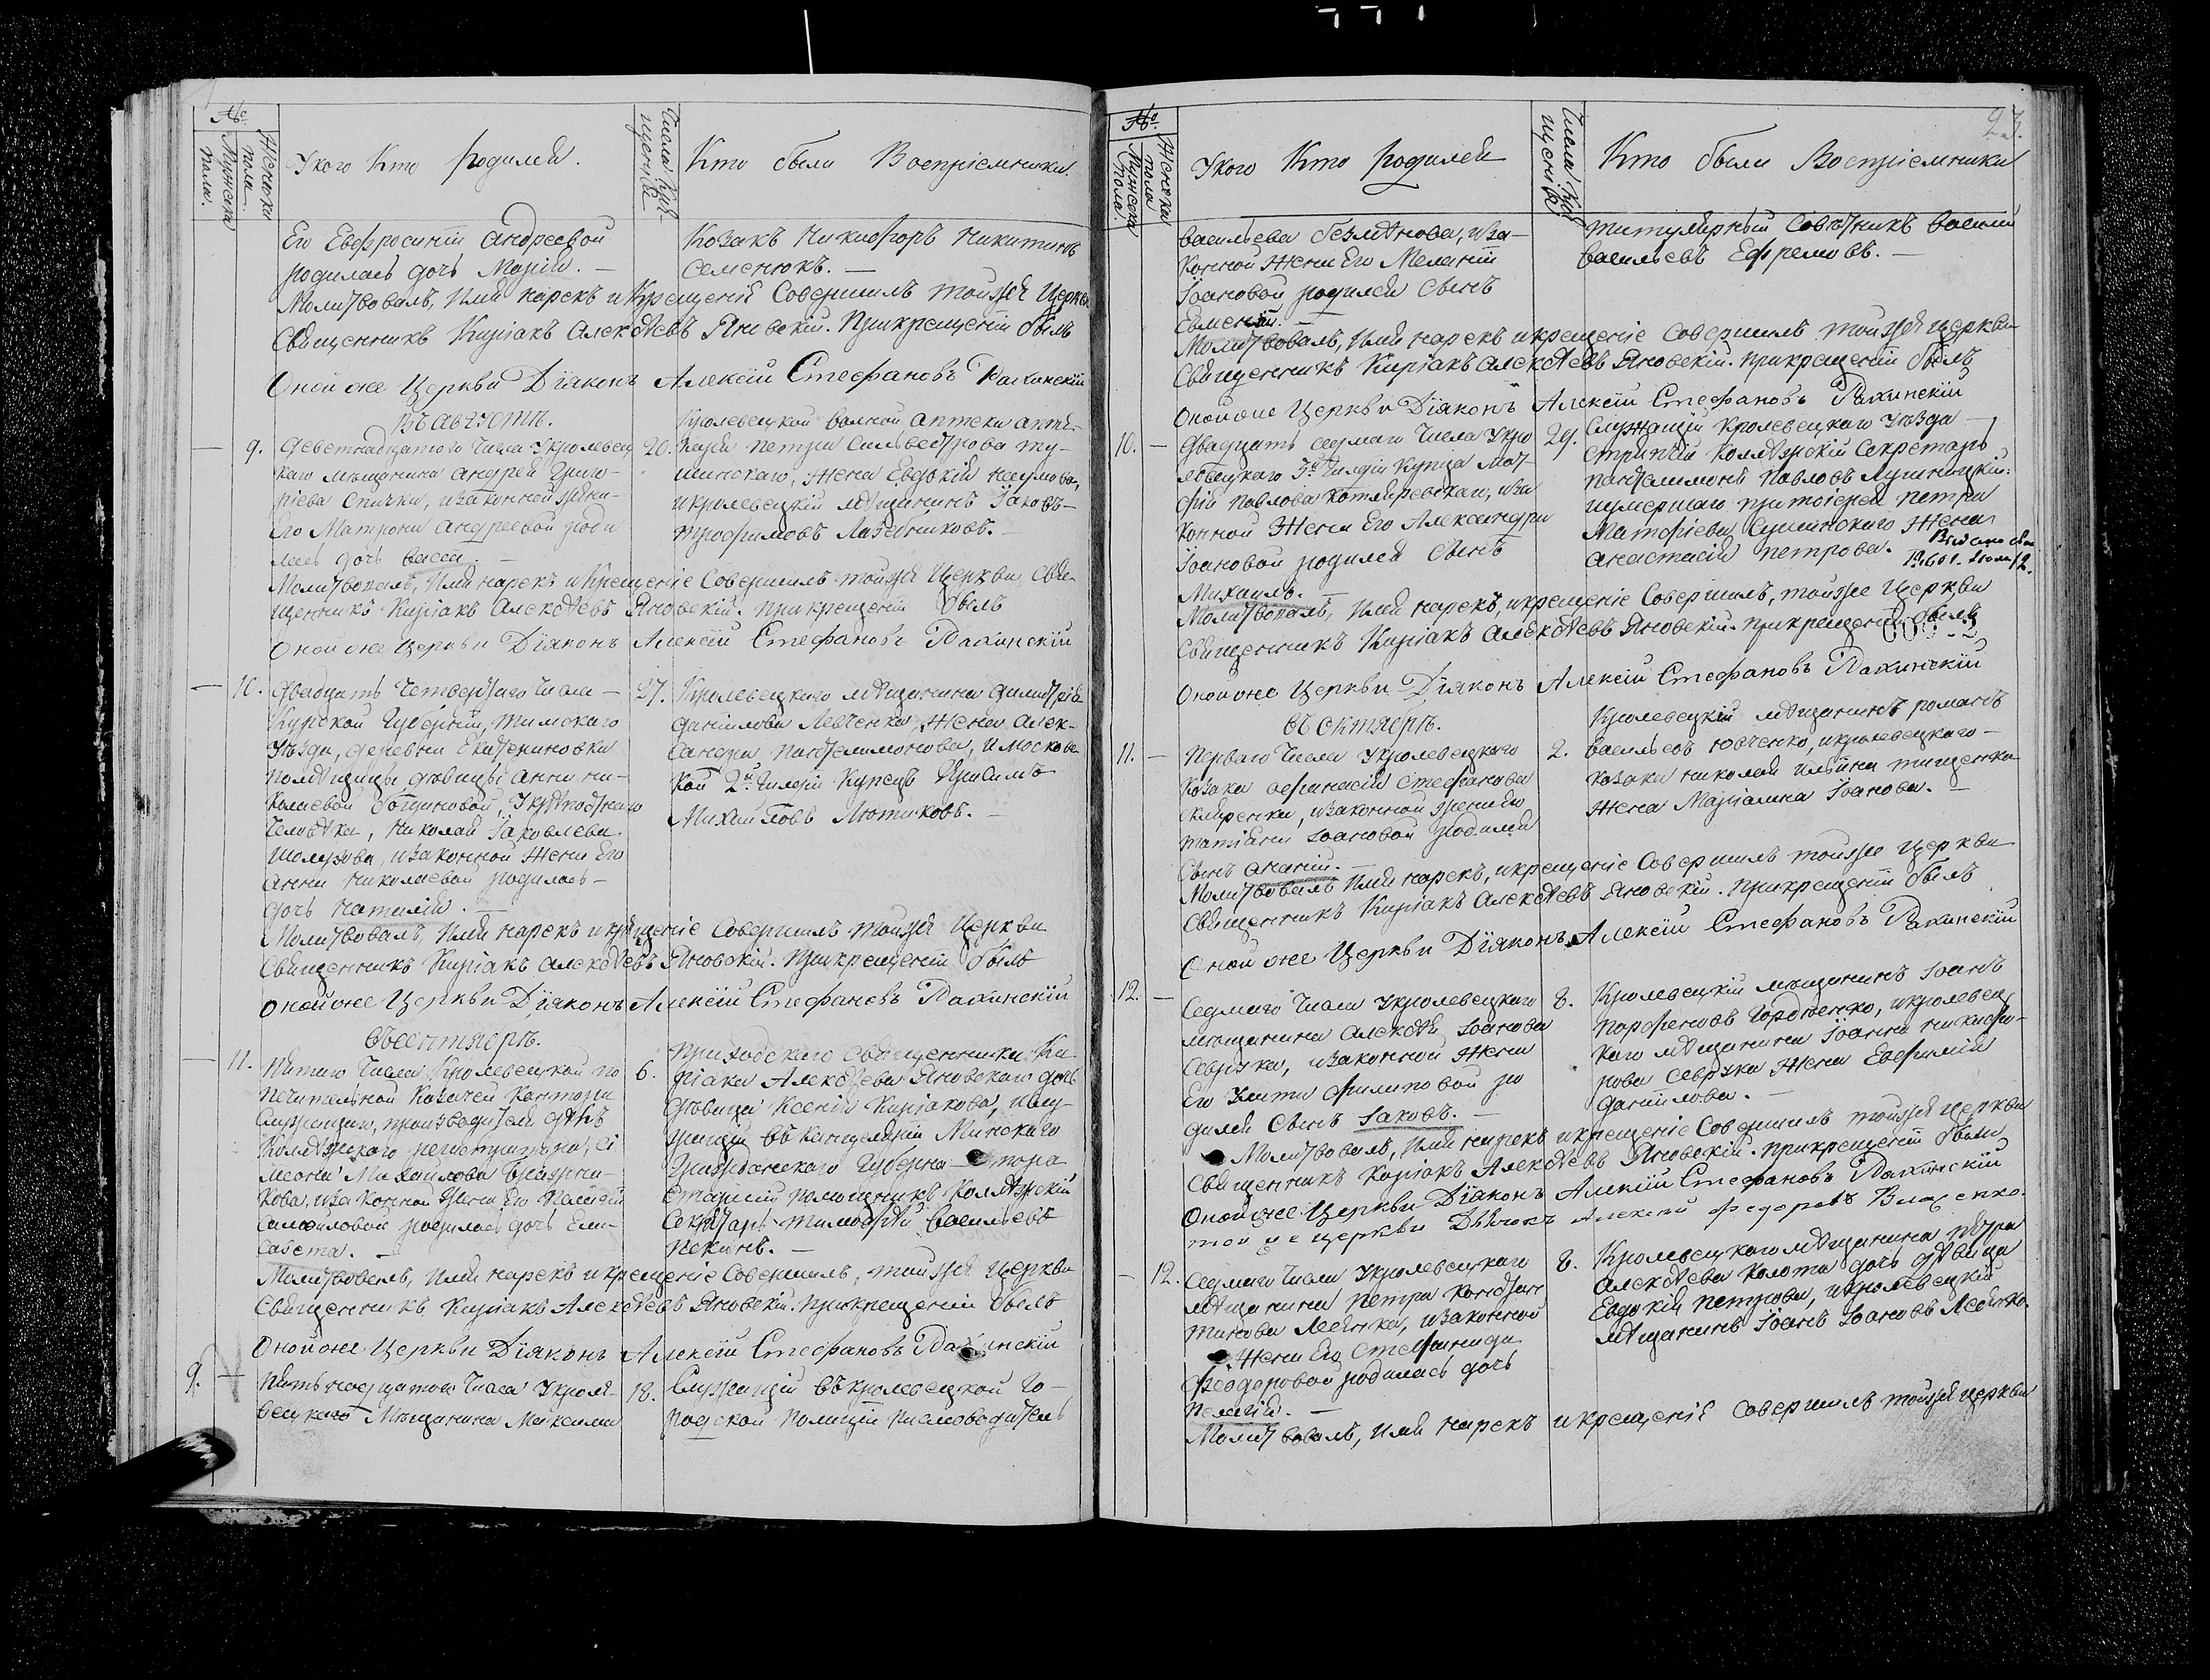 №
Мужеска пола.
Женска пола
У кого Кто родился.
Числа Крещенія
Кто были Воспріемники.
Его Евфросиніи Андреевой
родилась дочь Марія. —
Козакъ Никифоръ Никитинъ
Семенюкъ. —
Молитвовалъ, Имя нарекъ и Крещеніе Совершилъ тойже Церкви
Священникъ Киріакъ Алексѣевъ Яновскій. При крещеніи былъ
Оной же Церкви Діяконъ Алексій Стефановъ
Въ августѣ.
9.
Деветнадцатого Числа У кролевец
каго мѣщанина андрея Григо-
рїева Спички, и законной жены
Его Матроны андреевой роди
лась дочь Васса. —
20.
Кролевецкой вольной аптеки апте-
каря петра Сильвестрова
жена Евдокія Наумова,
и кролевецкій мѣщанинъ Іаковъ
трофимовъ —
Молитвовалъ, Имя нарекъ и Крещеніе Совершилъ тойже Церкви Свя-
щенникъ Киріакъ Алексѣевъ Яновскій. при крещеніи былъ
Оной же Церкви Діяконъ Алексій Стефановъ
10.
Двадцать Четвертаго Числа —
Курской Губерніи, тимскаго
Уѣзда, деревни Екатериновки
помѣщицы дѣвицы анны ни-
колаевой У крѣпостнаго
Человѣка, Николая Іаковлева
и законной жены Его
анны николаевой родилась —
дочь Наталія. —
27.
Кролевецкого мѣщанина димитрія
даніилова Левченка жена Алек-
сандра пантелимонова, и московс
кой 2й Гилдіи Купецъ Герасимъ
Михайловъ Лютиковъ. —
Молитвовалъ, Имя нарекъ и крещеніе Совершилъ тойже Церкви
Священникъ Киріакъ алексѣевъ Яновскій. При крещеніи былъ
Оной же Церкви Діяконъ Алексій Стефановъ
Въ сентябрѣ.
11.
Пятаго Числа Кролевецкой по
печительной Казачей Канторы
Служащаго, производителя дѣлъ
Колежского регистратора, Сі
меона Михайлова
кова, и законной жены Его Пелагіи
Самойловой родилась дочь Ели-
савета. —
6.
Приходского Священника Ки
ріака Алексѣева Яновского дочь
дѣвица Ксенія Киріакова, и слу-
жащій въ Канцеляріи Минского
Гражданского Губерна — тора
Старшій помощникъ Колежскій
Секретарь тимофей Васильевъ
Пекинъ. —
Молитвовалъ, Имя нарекъ и крещеніе Совершилъ, тойже Церкви
Священникъ Киріакъ Алексѣевъ Яновскій. При крещеніи былъ
Оной же Церкви Діяконъ Алексій Стефановъ
9.
Пятьнадцатого Числа У кроле-
вецкаго Мѣщанина Максима
18.
Служащій въ кролевецкой Го-
родской полиціи писмоводитель
23.
№
Мужеска пола.
Женска пола
У кого Кто родился
Числа Крещенія
Кто были Воспріемники
Васильева и за-
конной Жены Его Меланіи
Іоановой родился Сынъ
Евменій.
титулярный Совѣтникъ Василій
Васильевъ Ефремовъ. —
Молитвовалъ, Имя нарекъ и крещеніе Совершилъ тойже церкви
Священникъ Киріакъ алексѣевъ Яновскій. При крещеніи былъ
Оной же Церкви Діяконъ Алексій Стефановъ
10.
Двадцать седмаго Числа У кро
левецкаго 3й Гилдіи Купца Мат-
фія Павлова Котляревскаго, и за
конной Жены Его Александры
Іоановой родился Сынъ
Михаилъ. —
29.
Служащій Кролевецкаго Уѣзда
Стряпчій Колежскій Секретарь
пантелимонъ Павловъ
и умершаго протоіерея петра
Матфіева Сушинского Жена
анастасія петрова.
Молитвовалъ, Имя нарекъ, и крещеніе Совершилъ, тойже Церкви
Священникъ Киріакъ Алексѣевъ Яновскій. при крещеніи былъ
Оной же Церкви Діяконъ Алексій Стефановъ
Въ октябрѣ.
11.
Перваго Числа У кролевецкаго
Козака афанасія Стефанова
и законной жены Его
татіаны Іоановой родился
Сынъ ананій. —
2.
Кролевецкій мѣщанинъ романъ
Васильевъ Юрченко, и кролевецкаго —
козака николая Ильина тищенка
жена Маріамна Іоанова. —
Молитвовалъ Имя нарекъ, и крещеніе Совершилъ тойже Церкви
Священникъ Киріакъ Алексѣевъ Яновскій. При крещеніи былъ
Оной же Церкви Діяконъ Алексій Стефановъ
12.
Седмаго Числа У кролевецкаго
мѣщанина алексѣя Іоанова
Севрука, и законной Жены
Его филиповой ро
дился Сынъ Іаковъ. —
8.
Кролевецкій мѣщанинъ Іоанъ
Парфеновъ Гордѣенко, и кролевец
каго мѣщанина Іоанна никифо-
рова Севрука жена Евфимія
даніилова. —
Молитвовалъ, Имя нарекъ и крещеніе Совершилъ тойже церкви
Священникъ Киріакъ Алексѣевъ Яновскій. При крещеніи были
Оной же Церкви Діяконъ Алексій Стефановъ
той же церкви Дьячокъ Алексей Федоровъ Власенко.
12.
Седмаго Числа У кролевецкаго
мѣщанина Петра Констан
тинова и законной
Жены Его Стефаниды
Феодоровой родилась дочь
Пелагія. —
8.
Кролевецкаго мѣщанина Петра
Алексѣева Колота дочь дѣвица
Евдокія Петрова, и кролевецкій
мѣщанинъ Іоанъ Іоановъ
Молитвовалъ, Имя нарекъ и крещеніе Совершилъ тойже церкви